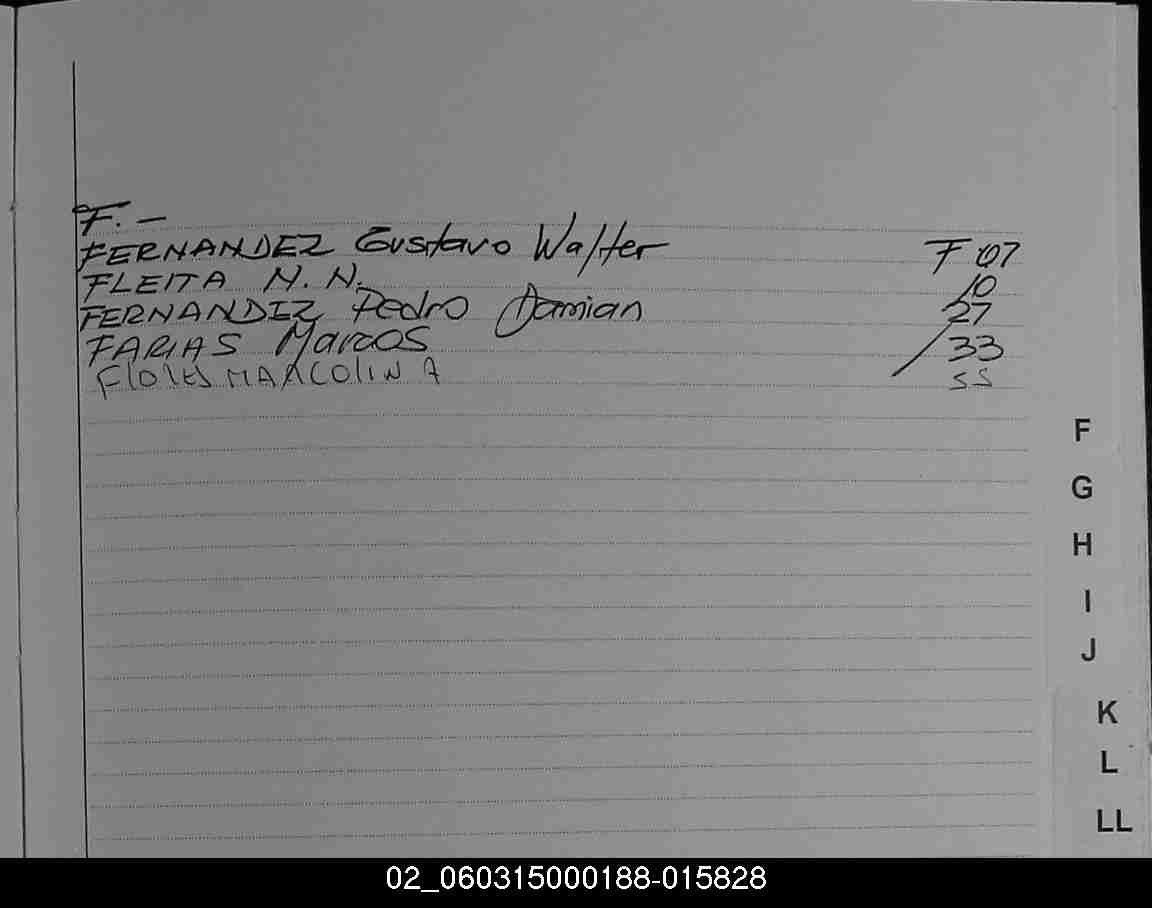 F. -
FERNANDEZ Gustavo Walter F 07
FLEITA N. N. 10
FERNANDEZ Pedro Damian 27
FARIAS Marcos 33
Flores MARCOLINA 55
F
G
H
I
J
K
L
LL
02_060315000188-015828